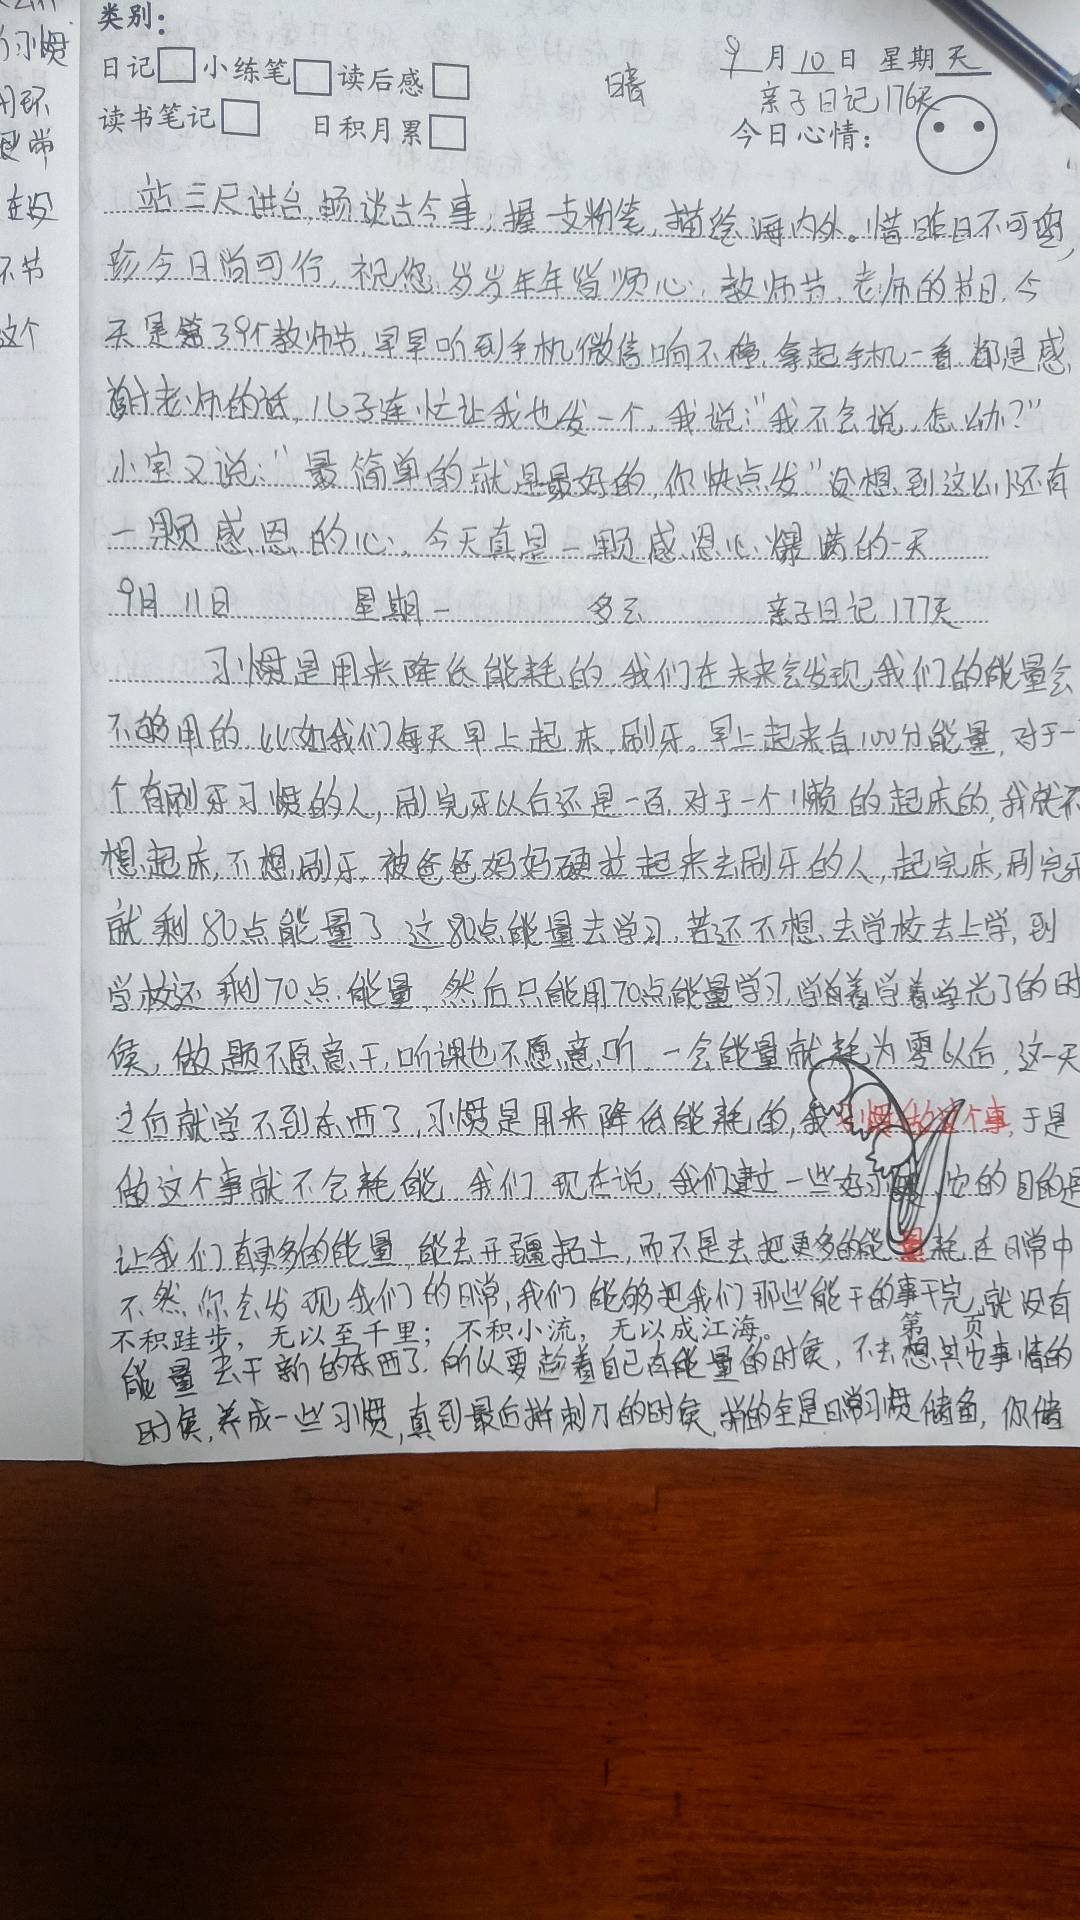 类别：
日记 小练笔 读后感 晴 9月10日 星期天
亲子日记176天
读书笔记 日积月累 今日心情：
站三尺讲台，畅谈古今事；握一支粉笔，描绘海内外。惜昨日不可
今日尚可行，祝您岁岁年年皆顺心，教师节，老师的节日，今
天是第39个教师节，早早听到手机微信响不停，拿起手机一看都是感
谢老师的话，儿子连忙让我也发一个，我说："我不会说，怎么办？"
小宝又说："最简单的就是最好的，你快点发"没想到这么小还有
一颗感恩的心，今天真是一颗感恩心爆满的一天
9月11日 星期一 多云 亲子日记177天
习惯是用来降低能耗的，我们在未来会发现，我们的能量会
不够用的，比如我们每天早上起床，刷牙。早上起来有100分能量，对于一
个有刷牙习惯的人，刷完牙以后还是一百，对于一个懒的起床的，我就不
想起床，不想刷牙，被爸爸妈妈硬拉起来去刷牙的人，起完床，刷完牙
就剩80点能量了，这80点能量去学习，若还不想去学校去上学，到
学校还剩70点能量，然后只能用70点能量学习，学着学着学光了的时
侯，做题不愿意干，听课也不愿意听，一会能量就耗为零以后，这一天
之后就学不到东西了，习惯是用来降低能耗的，我习惯做这个事，于是
做这个事就不会耗能，我们现在说，我们建立一些好习惯，它的目的是
让我们有更多的能量，能去开疆拓土，而不是去把更多的能量耗在日常中
不然你会发现我们的日常，我们能够把我们那些能干的事干完，就没有
不积跬步，无以至千里；不积小流，无以成江海。 第 页
能量去干新的东西了，所以要趁着自己有能量的时侯，不去想其它事情的
时侯，养成一些习惯，真到最后拼刺刀的时侯，拼的全是日常习惯储备，你储